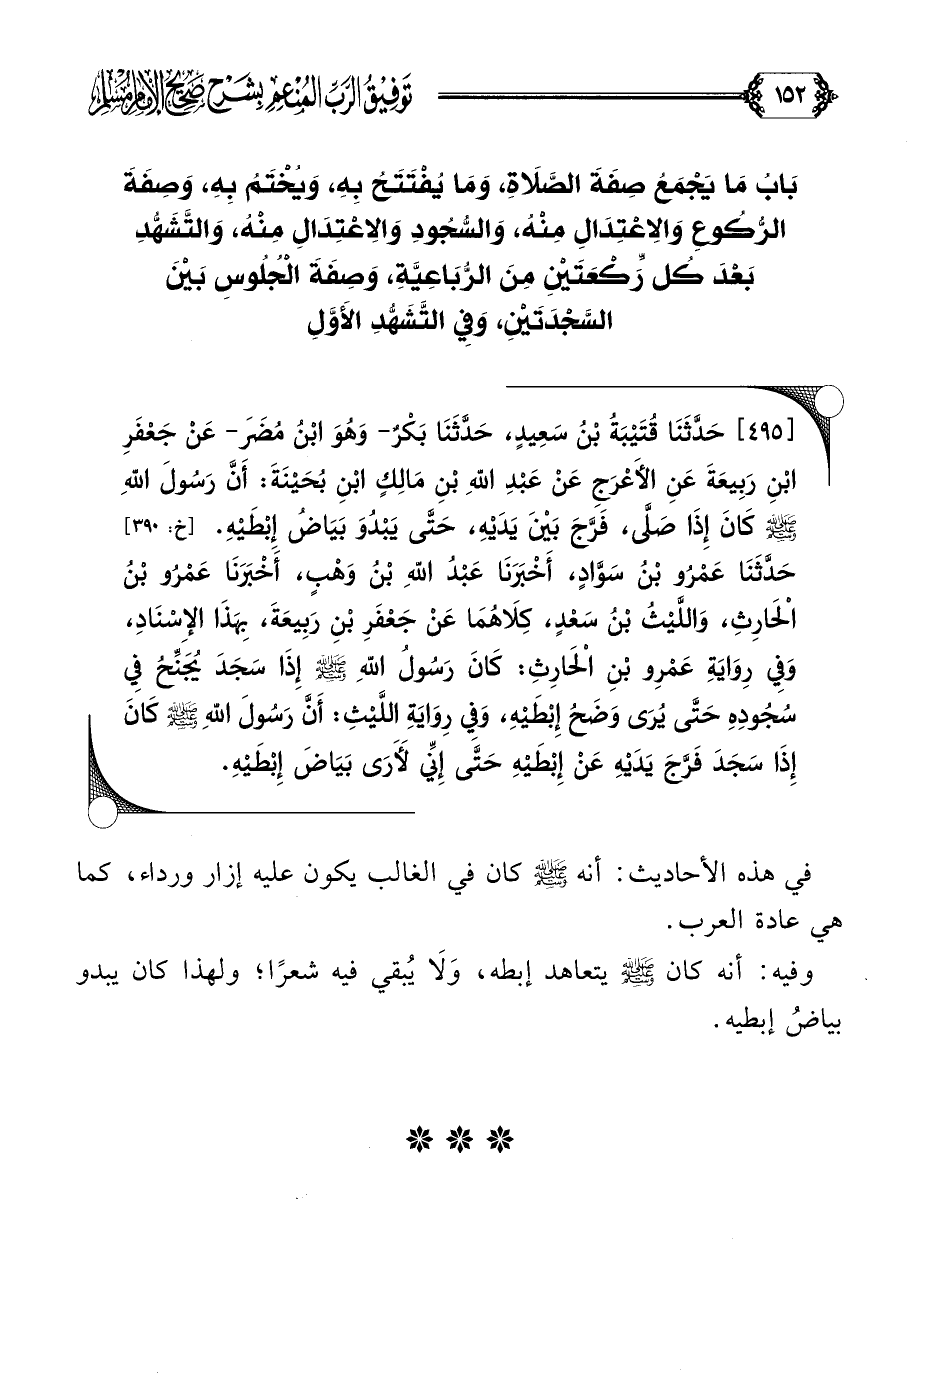 ١٥٢
تَوفِيقُ الرَبِّ المُنْعِمِ بِشَرْحِ صَحِيحِ الإِمَامِ مُسْلِم
بَابُ مَا يَجْمَعُ صِفَةَ الصَّلَاةِ، وَمَا يُفْتَتَحُ بِهِ، وَيُخْتَمُ بِهِ، وَصِفَةَ
الرُّكُوعِ وَالِاعْتِدَالِ مِنْهُ، وَالسُّجُودِ وَالِاعْتِدَالِ مِنْهُ، وَالتَّشَهُّدِ
بَعْدَ كُلِّ رَكْعَتَيْنِ مِنَ الرُّبَاعِيَّةِ، وَصِفَةَ الْجُلُوسِ بَيْنَ
السَّجْدَتَيْنِ، وَفِي التَّشَهُّدِ الأَوَّلِ
[٤٩٥] حَدَّثَنَا قُتَيْبَةُ بْنُ سَعِيدٍ، حَدَّثَنَا بَكْرٌ- وَهُوَ ابْنُ مُضَرَ- عَنْ جَعْفَرِ
ابْنِ رَبِيعَةَ عَنِ الأَعْرَجِ عَنْ عَبْدِ اللهِ بْنِ مَالِكٍ ابْنِ بُحَيْنَةَ: أَنَّ رَسُولَ اللهِ
ﷺ كَانَ إِذَا صَلَّى، فَرَّجَ بَيْنَ يَدَيْهِ، حَتَّى يَبْدُوَ بَيَاضُ إِبْطَيْهِ. [خ: ٣٩٠]
حَدَّثَنَا عَمْرُو بْنُ سَوَّادٍ، أَخْبَرَنَا عَبْدُ اللهِ بْنُ وَهْبٍ، أَخْبَرَنَا عَمْرُو بْنُ
الْحَارِثِ، وَاللَّيْثُ بْنُ سَعْدٍ، كِلَاهُمَا عَنْ جَعْفَرِ بْنِ رَبِيعَةَ، بِهَذَا الإِسْنَادِ،
وَفِي رِوَايَةِ عَمْرِو بْنِ الْحَارِثِ: كَانَ رَسُولُ اللهِ ﷺ إِذَا سَجَدَ يُجَنِّحُ فِي
سُجُودِهِ حَتَّى يُرَى وَضَحُ إِبْطَيْهِ، وَفِي رِوَايَةِ اللَّيْثِ: أَنَّ رَسُولَ اللهِ ﷺ كَانَ
إِذَا سَجَدَ فَرَّجَ يَدَيْهِ عَنْ إِبْطَيْهِ حَتَّى إِنِّي لَأَرَى بَيَاضَ إِبْطَيْهِ.
في هذه الأحاديث: أنه ﷺ كان في الغالب يكون عليه إزار ورداء، كما
هي عادة العرب.
وفيه: أنه كان ﷺ يتعاهد إبطه، وَلَا يُبقي فيه شعرًا؛ ولهذا كان يبدو
بياضُ إبطيه.